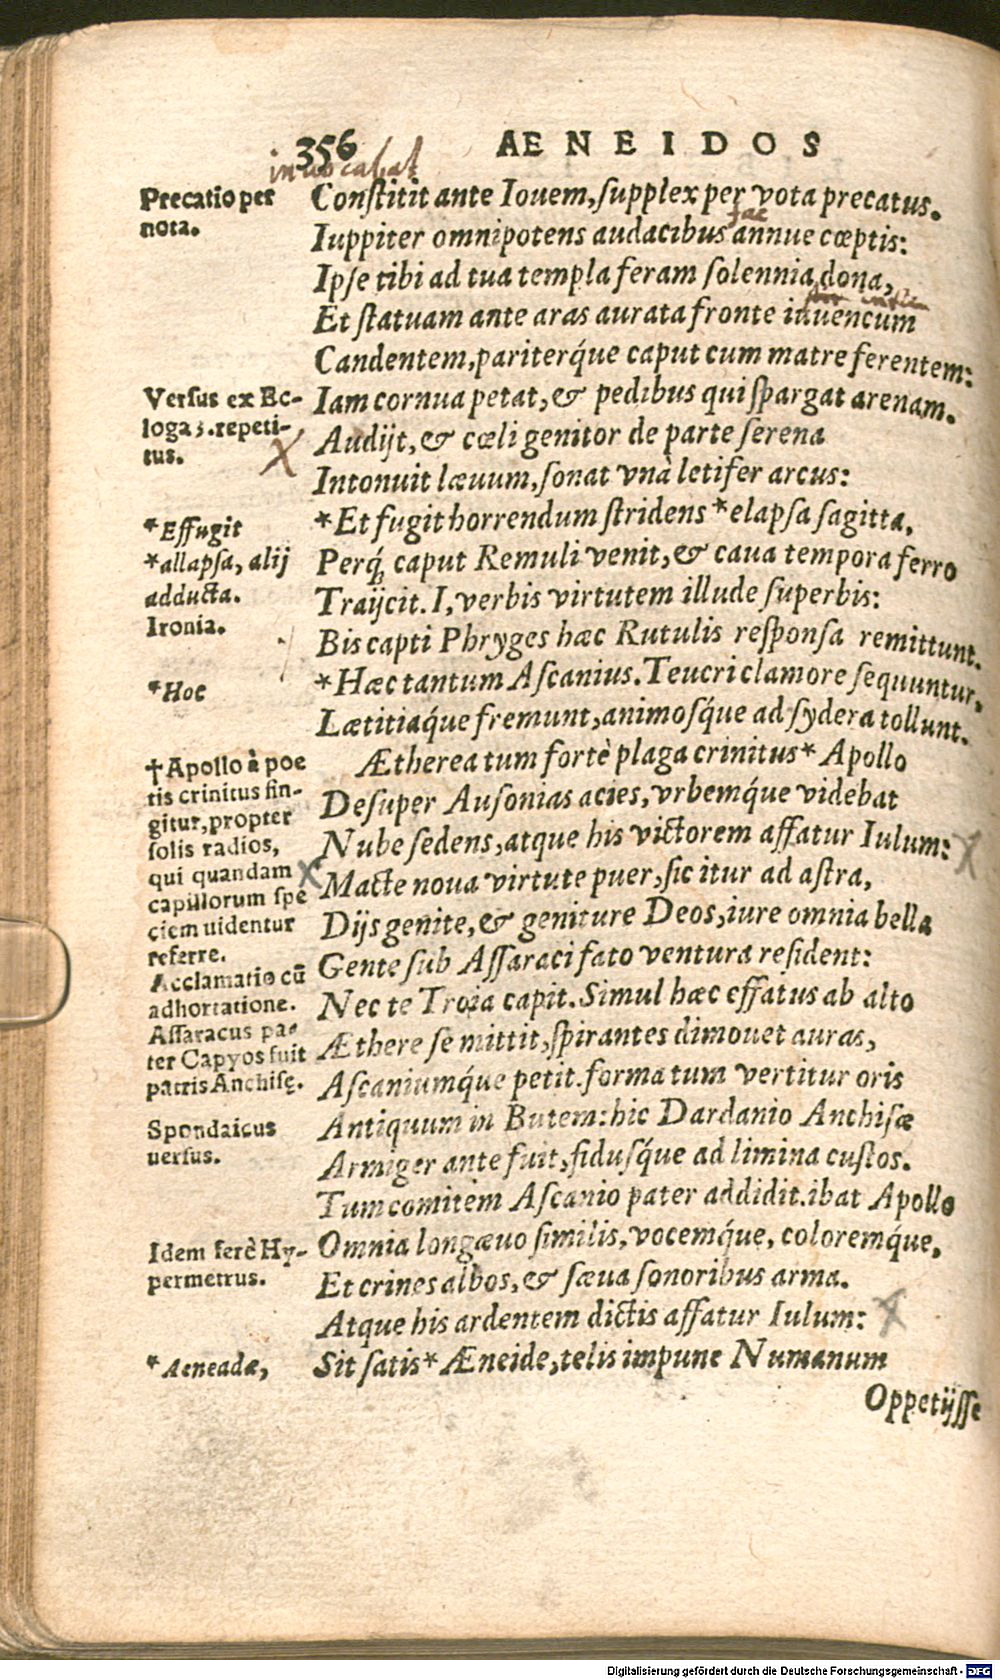 356 AENEIDOS
inuocabat
Precatio per
nota.
Constitit ante Iouem, supplex per vota precatus.
fac
Iuppiter omnipotens audacibus annue cœptis:
Ipse tibi ad tua templa feram solennia dona,
Et statuam ante aras aurata fronte iuuencum
Candentem, pariterq́ue caput cum matre ferentem:
Versus ex Ec-
loga 3. repeti-
tus.
Iam cornua petat, & pedibus qui spargat arenam.
Audijt, & cœli genitor de parte serena
Intonuit lævum, sonat vnà letifer arcus:
*Effugit
*allapsa, alij
adducta.
Ironia.
*Et fugit horrendum stridens *elapsa sagitta,
Perq́; caput Remuli venit, & caua tempora ferro
Traijcit. I, verbis virtutem illude superbis:
Bis capti Phryges hæc Rutulis responsa remittunt.
*Hoc
*Hæc tantum Ascanius. Teucri clamore sequuntur,
Lætitiaq́ue fremunt, animosq́ue ad sydera tollunt.
†Apollo à poe
tis crinitus fin-
gitur, propter
solis radios,
qui quandam
capillorum spe
ciem uidentur
referre.
Acclamatio cū
adhortatione.
Assaracus pa-
ter Capyos fuit
patris Anchisę.
Ætherea tum fortè plaga crinitus* Apollo
Desuper Ausonias acies, vrbemq́ue videbat
Nube sedens, atque his victorem affatur Iulum:
Macte noua virtute puer, sic itur ad astra,
Dijs genite, & geniture Deos, iure omnia bella
Gente sub Assaraci fato ventura resident:
Nec te Troia capit. Simul hæc effatus ab alto
Æthere se mittit, spirantes dimouet auras,
Ascaniumq́ue petit. forma tum vertitur oris
Spondaicus
uersus.
Antiquum in Butem: hic Dardanio Anchisæ
Armiger ante fuit, fidusq́ue ad limina custos.
Tum comitem Ascanio pater addidit. ibat Apollo
Idem ferè Hy-
permetrus.
Omnia longævo similis, vocemq́ue, coloremq́ue,
Et crines albos, & sæua sonoribus arma.
Atque his ardentem dictis affatur Iulum:
*Aeneadæ,
Sit satis* Æneide, telis impune Numanum
Oppetijsse
Digitalisierung gefördert durch die Deutsche Forschungsgemeinschaft - DFG